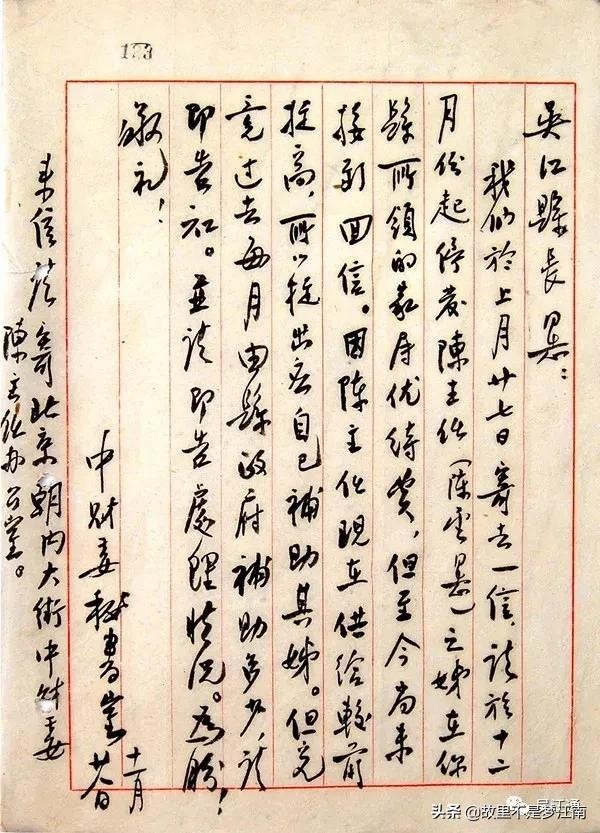 吴江縣長同志:
我们於上月廿七日寄去一信,请於十二
月份起停发陳主任(陈雲同志)之姊在你
縣所领的家属优待费,但至今尚未
接到回信。因陈主任现在供给較前
提高,所以提出应自己補助其姊。但究
竟过去每月由縣政府補助多少,请
即告知。並请即告處理情况。為盼!
敬礼!
中财委秘书室
来信请寄北京朝内大街中财委
陳主任办公室。
吴江通
头条 @故里不是梦江南